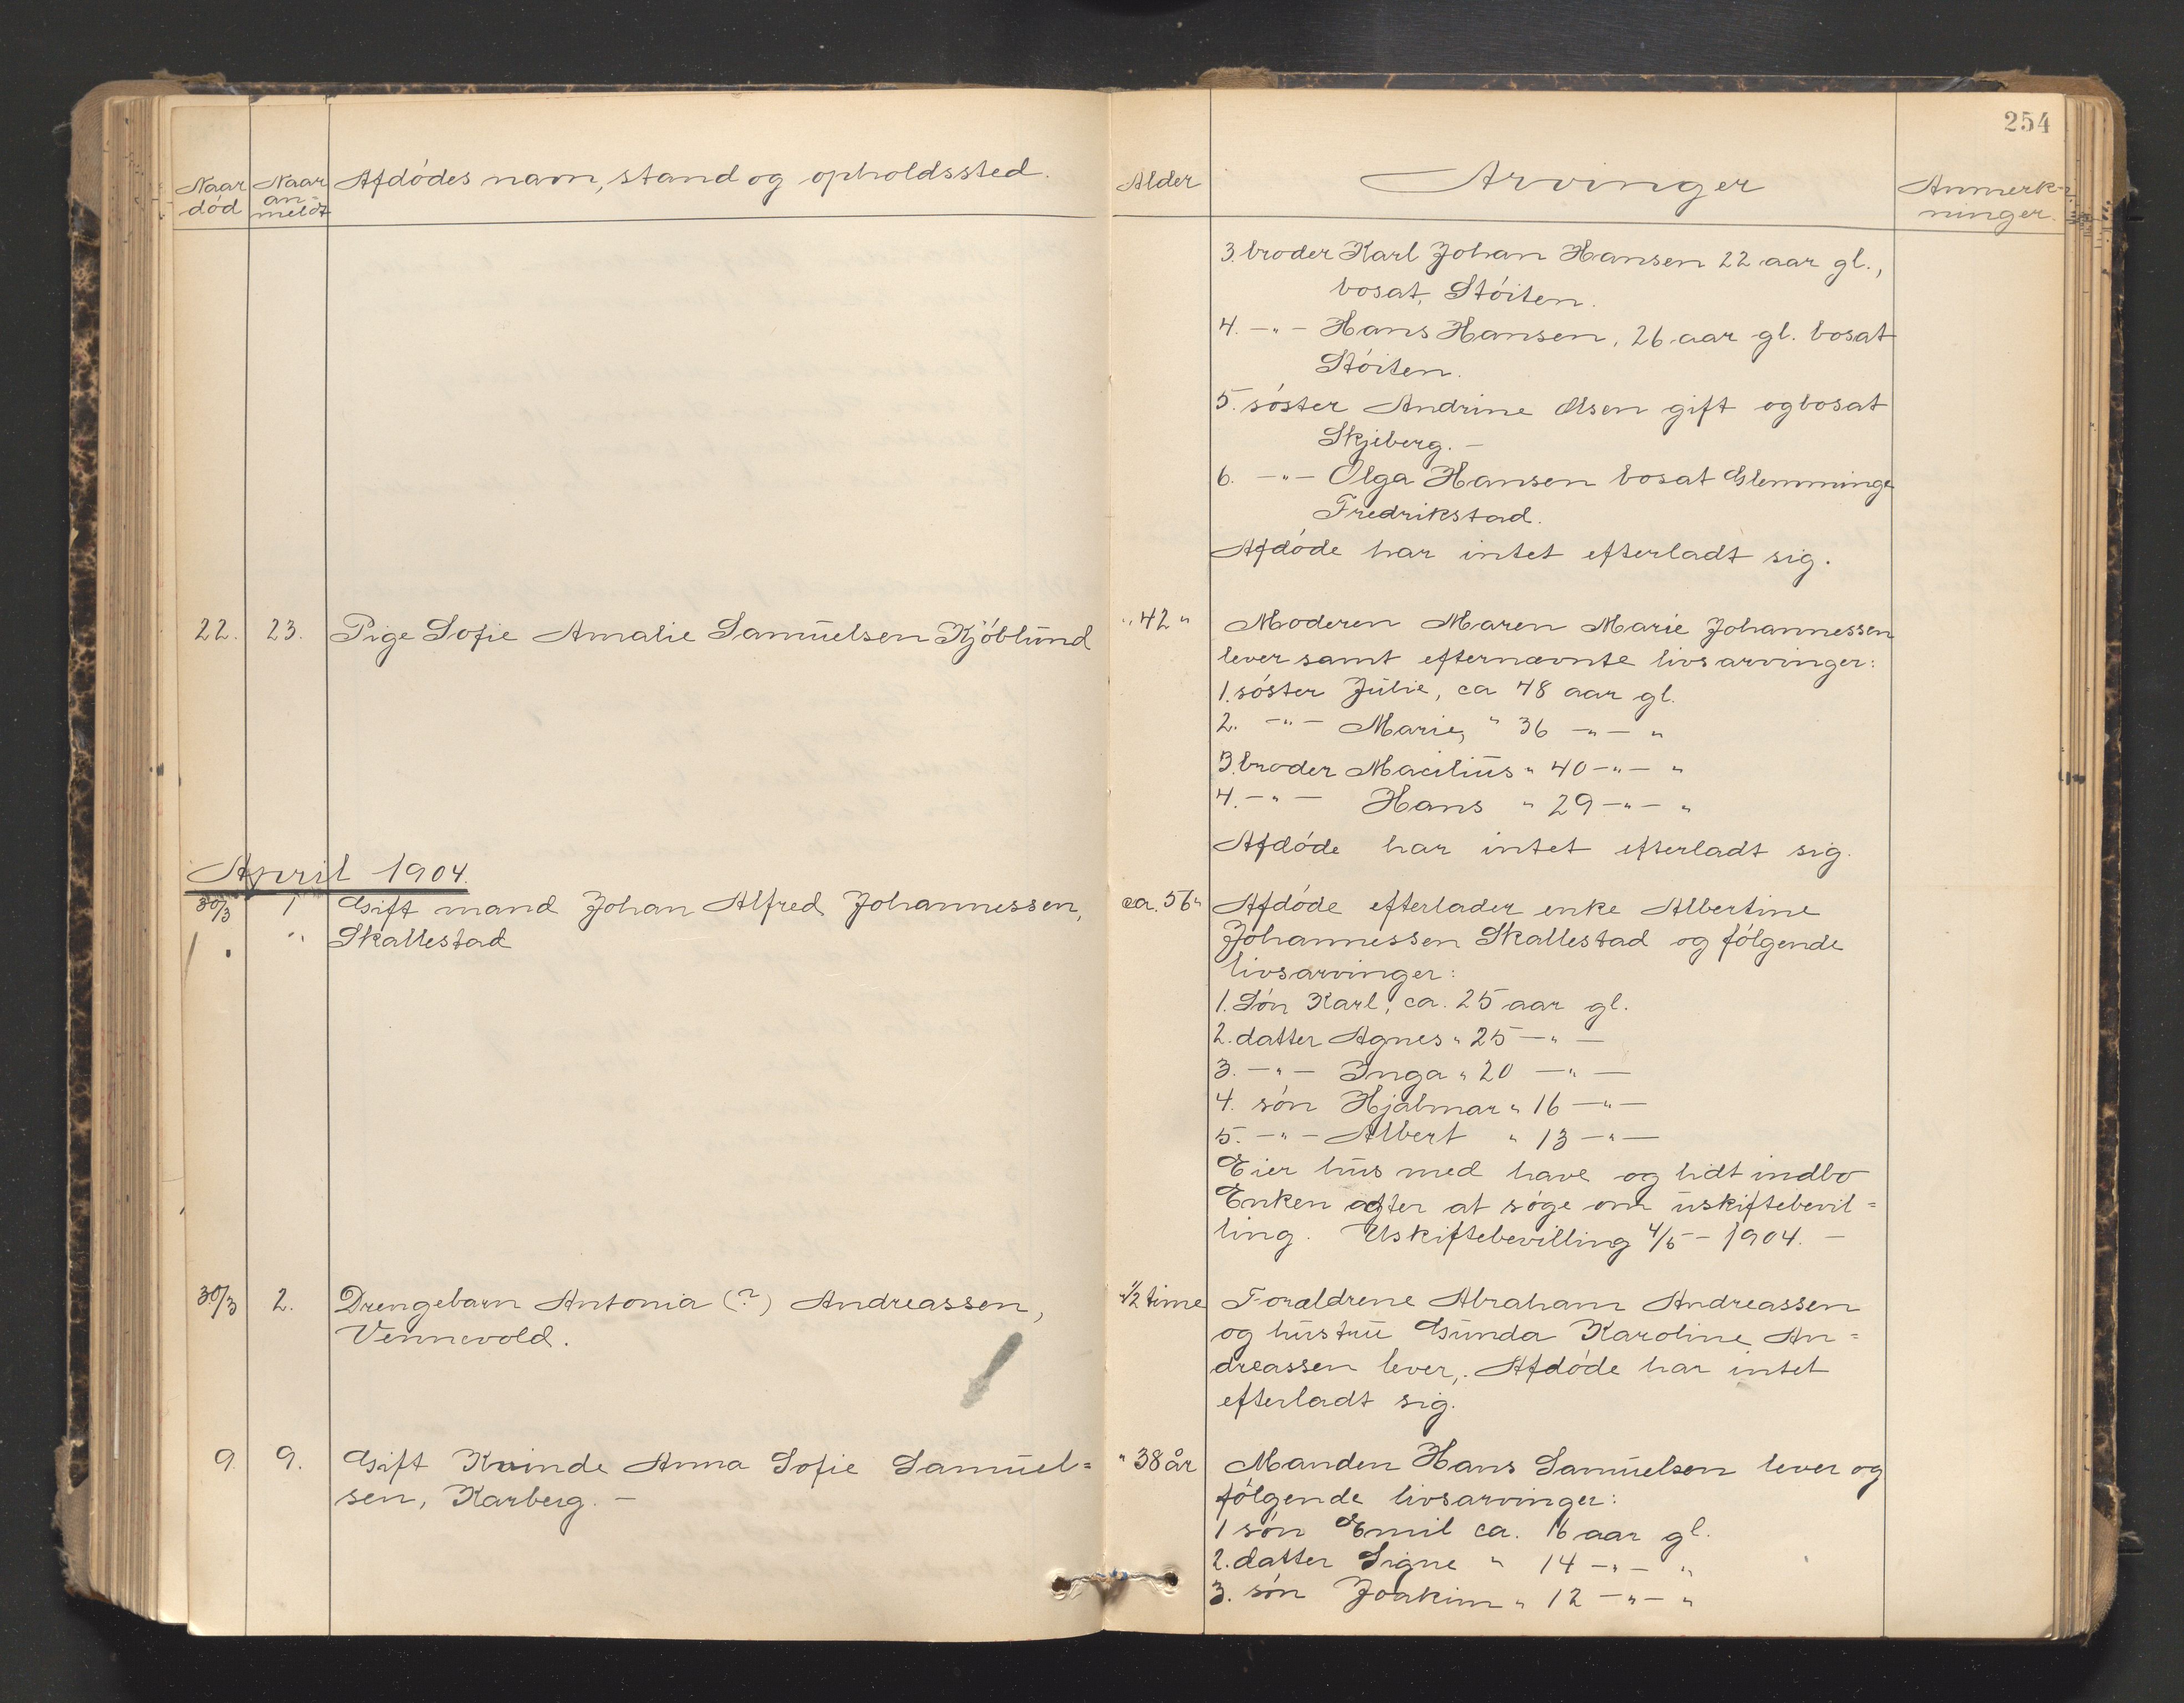 254
Naar død
Naar an-meldt
Afdødes navn, stand og opholdssted.
Alder
Arvinger
Anmerk-ninger.
3. broder Karl Johan Hansen 22 aar gl.,
bosat, Støiten.
4. -"- Hans Hansen, 26 aar gl. bosat
Støiten.
5. søster Andrine Olsen gift og bosat
Skjeberg. -
6. -"- Olga Hansen bosat Glemminge
Fredrikstad.
Afdøde har intet efterladt sig.
22. 23. Pige Sofie Amalie Samuelsen Kjøblund
"42"
Moderen Maren Marie Johannessen
lever samt efternævnte livsarvinger:
1. søster Julie, ca 48 aar gl.
2. -"- Marie, " 36 -"- "
3. broder Macilius " 40 -"- "
4. -"- Hans " 29 -"- "
Afdøde har intet efterladt sig.
April 1904.
30/3 1 Gift mand Johan Alfred Johannessen,
" Skallestad
ca. 56"
Afdøde efterlader enke Albertine
Johannessen Skallestad og følgende
livsarvinger:
1. Søn Karl, ca. 25 aar gl.
2. datter Agnes " 25 -"-
3. -"- Inga " 20 -"-
4. søn Hjalmar " 16 -"-
5. -"- Albert " 13 -"-
Eier hus med have og lidt indbo
Enken agter at søge om uskiftebevil=
ling. Uskiftebevilling 4/5 - 1904. -
30/3 2. Drengebarn Antonia (?) Andreassen,
Vennevold.
1/2 time
Forældrene Abraham Andreassen
og hustru Gunda Karoline An=
dreassen lever,. Afdøde har intet
efterladt sig.
9. 9. Gift Kvinde Anna Sofie Samuel=
sen, Karberg. -
" 38 år
Manden Hans Samuelsen lever og
følgende livsarvinger:
1 søn Emil ca. 16 aar gl.
2. datter Signe " 14 -"- "
3. søn Joakim " 12 -"- "